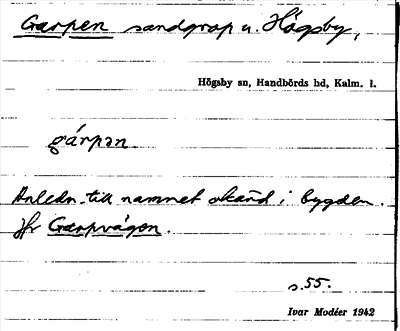 Garpen sandgrop u. Högsby,
Högsby sn, Handbörds hd, Kalm. l.
gárpən.
Anledn. till namnet okänd i bygden.
Jfr Garpvägen.
s. 55.
Ivar Modéer 1942